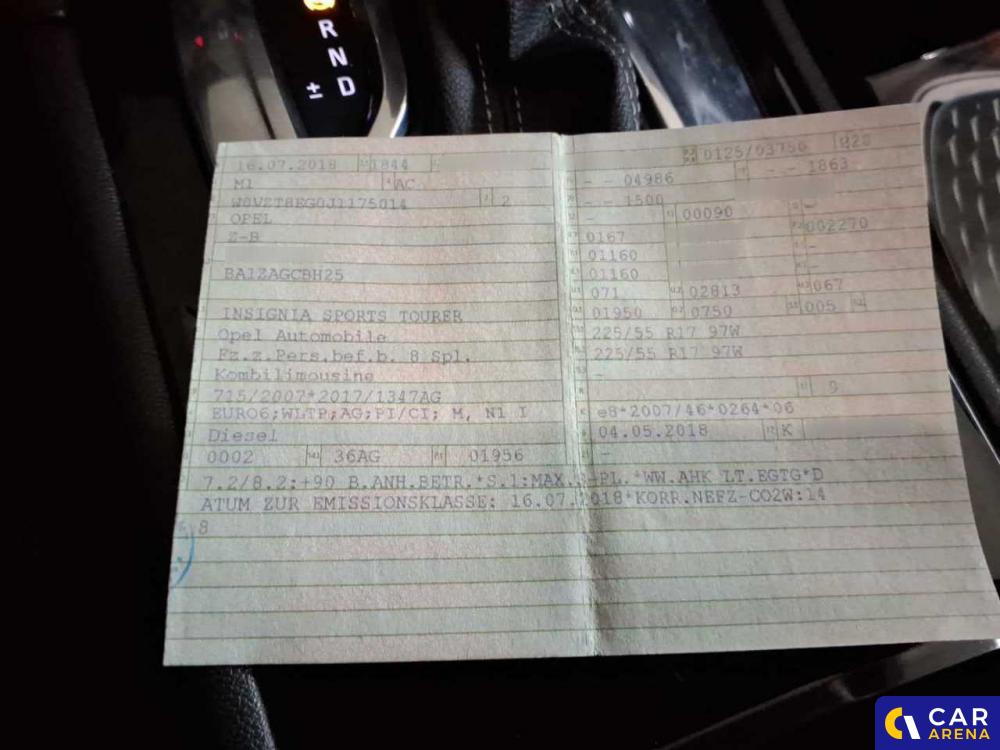 R
N
± D
16.07.2018 1844
M1 AC
W0VZT8EG0J1175014 2
OPEL
Z-B
BA1ZAGCBH25
INSIGNIA SPORTS TOURER
Opel Automobile
Fz.z.Pers.bef.b. 8 Spl.
Kombilimousine
715/2007*2017/1347AG
EURO6;WLTP;AG;PI/CI; M, N1 I
Diesel
0002 36AG 01956
0125/03750 020
- - 04986 - - 1863
- - 1500
- 00090 002270
0167 -
01160 -
01160
071 02813 067
01950 0750 005
225/55 R17 97W
225/55 R17 97W
-
9
e8*2007/46*0264*06
04.05.2018 K
-
7.2/8.2:+90 B.ANH.BETR.*S.1:MAX. -PL.*WW.AHK LT.EGTG*D
ATUM ZUR EMISSIONSKLASSE: 16.07.2018*KORR.NEFZ-CO2W:14
8
CAR
ARENA